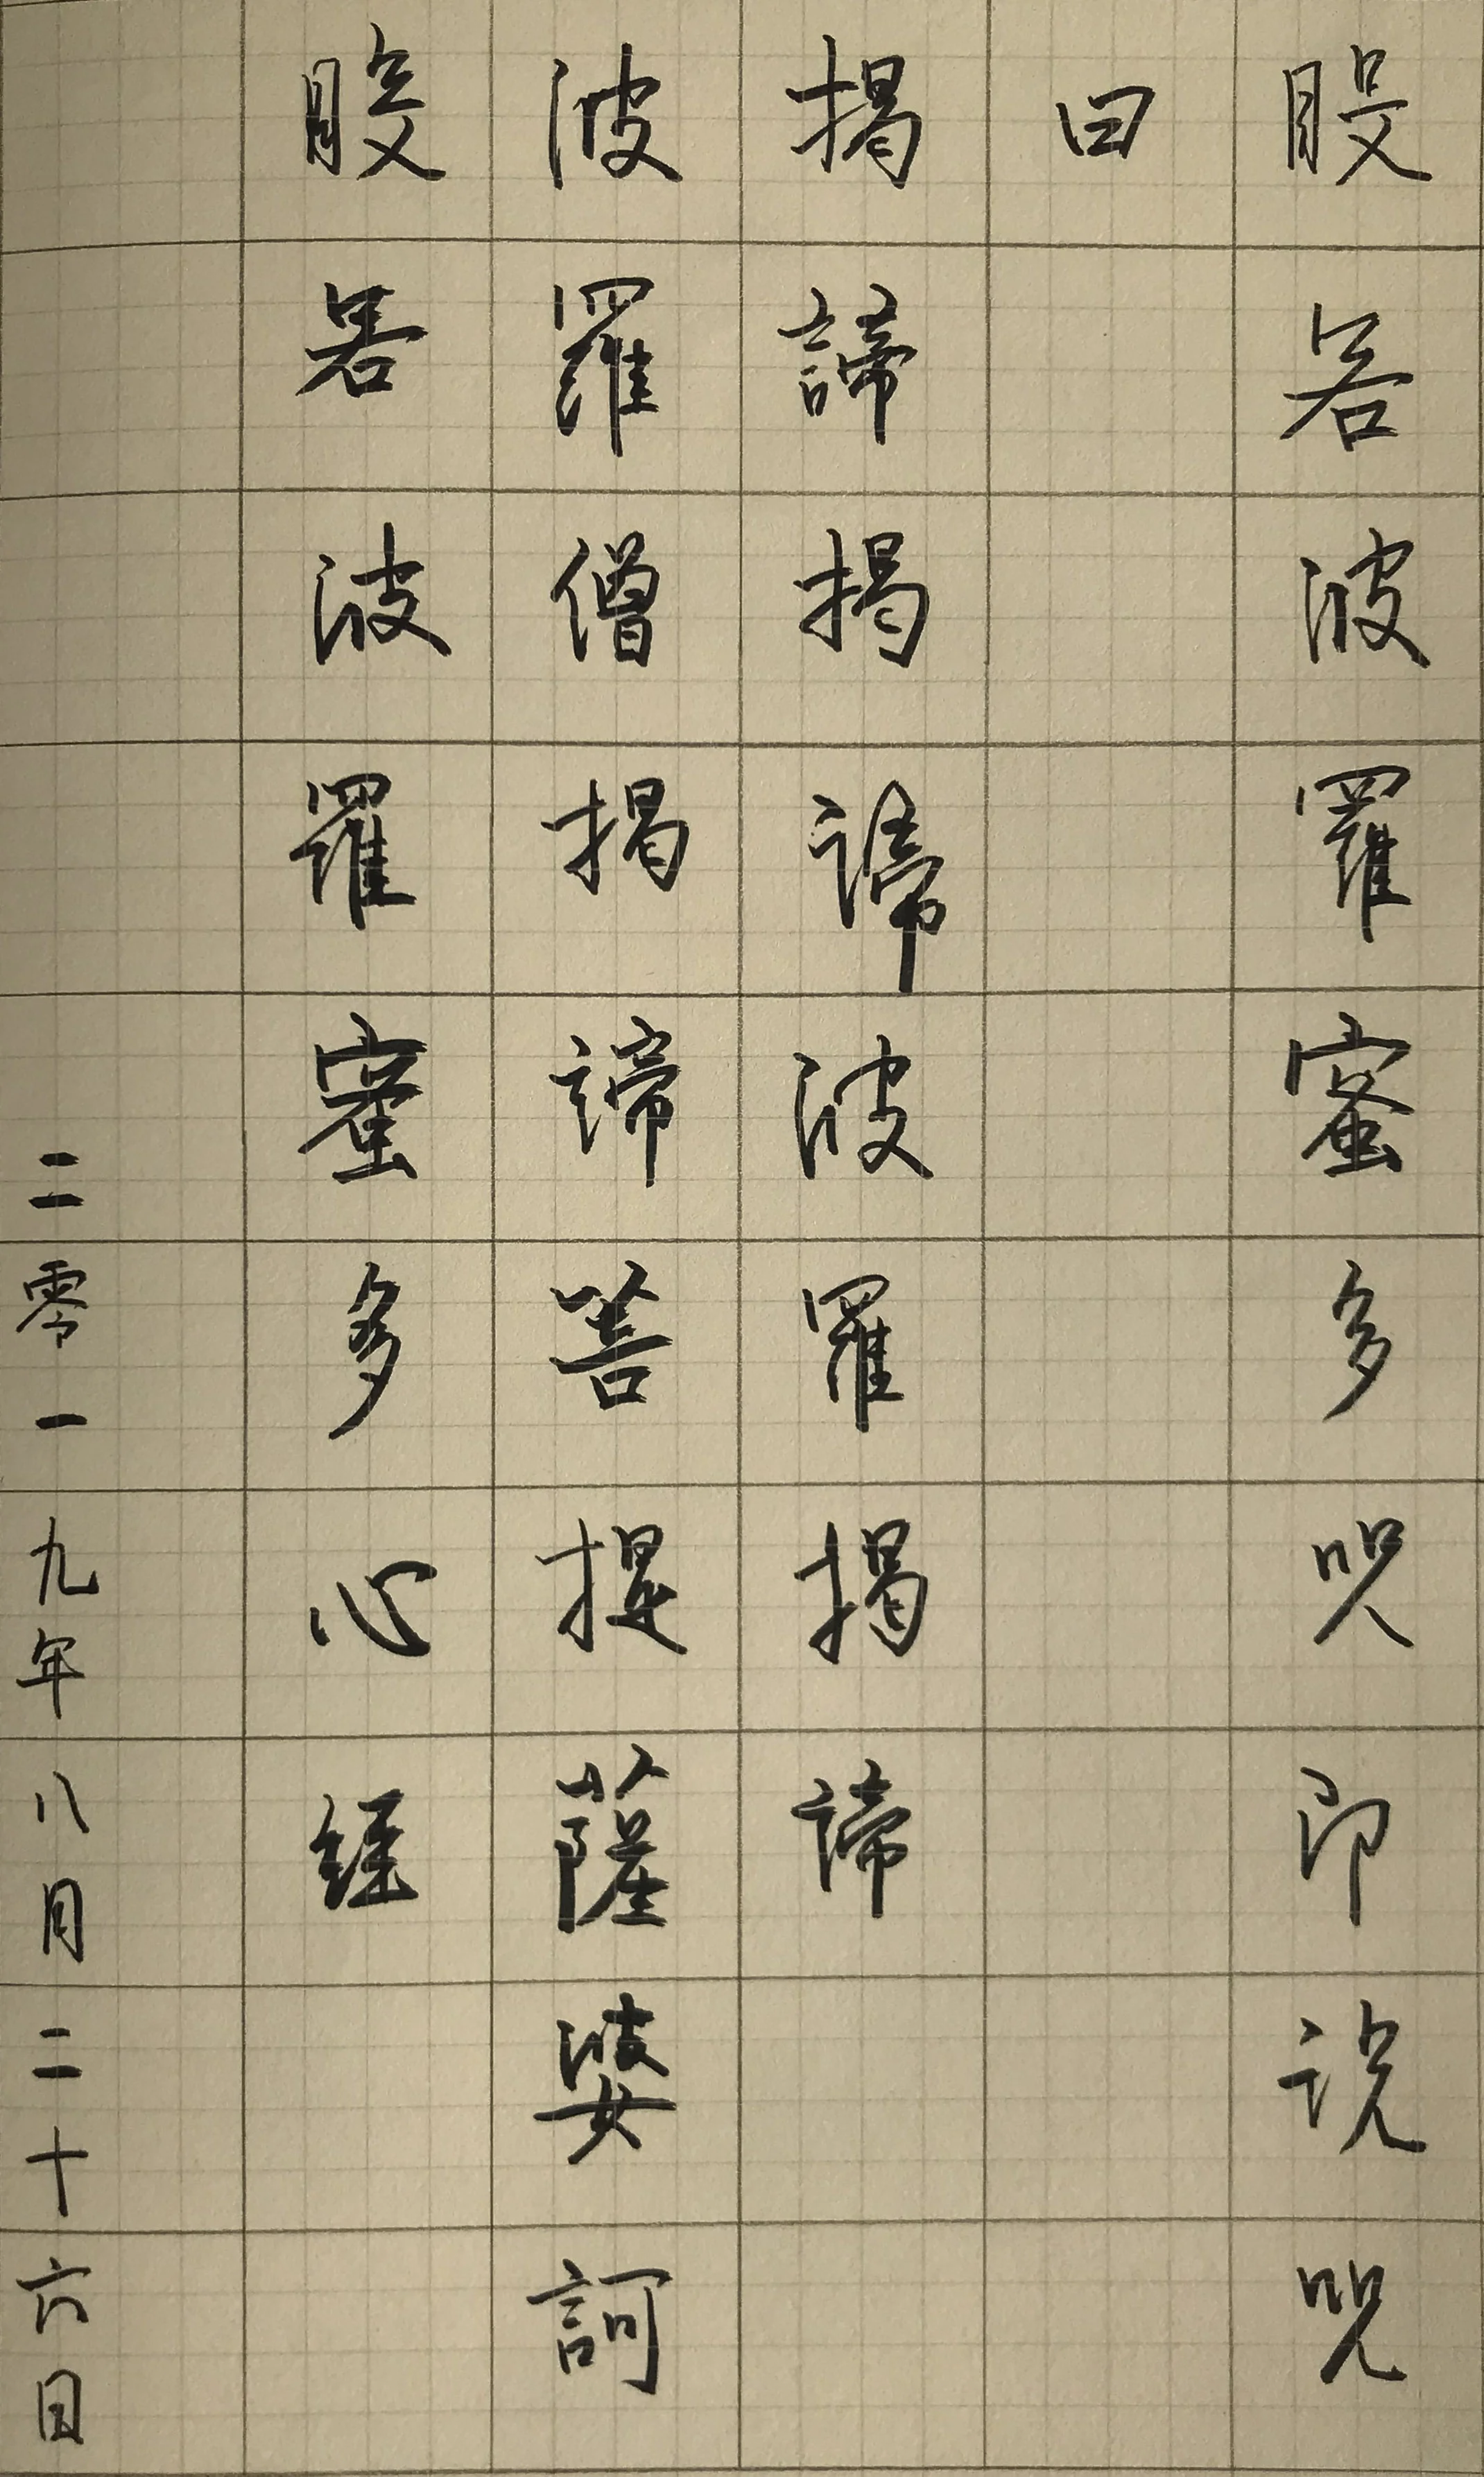 般若波羅蜜多咒即说咒
曰
揭諦揭諦波羅揭諦
波羅僧揭諦菩提薩婆訶
般若波羅蜜多心経
二零一九年八月二十六日